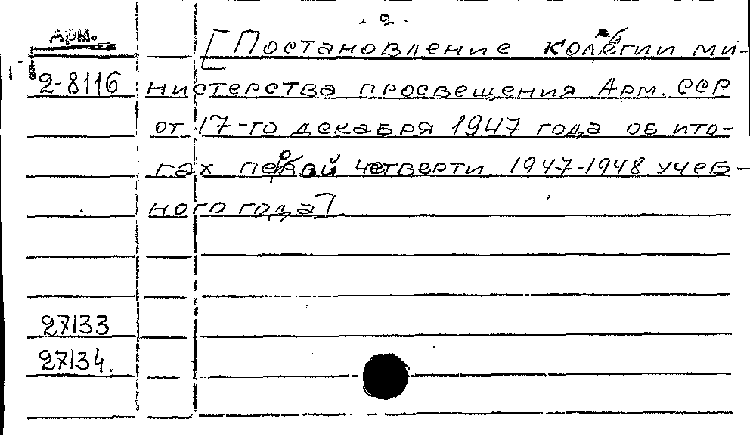 - 2 -
Арм.
[Постановление колегии ми-
2-8116 нистерства просвещения Арм. ССР
от 17-го декабря 1947 года об ито-
гах первой четверти 1947-1948 учеб-
ного года].
27133
27134.